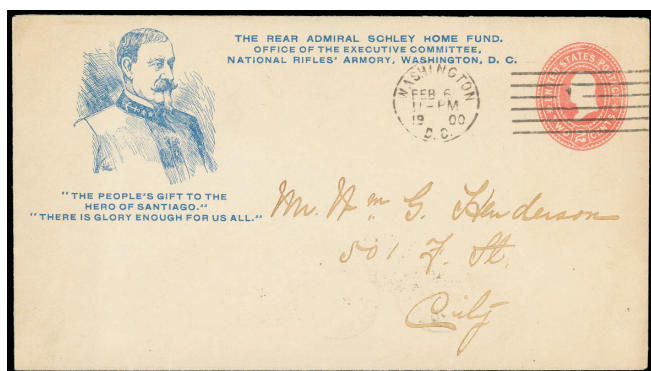 THE REAR ADMIRAL SCHLEY HOME FUND.
OFFICE OF THE EXECUTIVE COMMITTEE,
NATIONAL RIFLES' ARMORY, WASHINGTON, D. C.
WASHINGTON
FEB 6
11-PM
19 00
D.C.
UNITED STATES POSTAGE
TWO 2 CENTS
"THE PEOPLE'S GIFT TO THE
HERO OF SANTIAGO."
"THERE IS GLORY ENOUGH FOR US ALL."
Mr. Wm. G. Henderson
501 F. St.
City